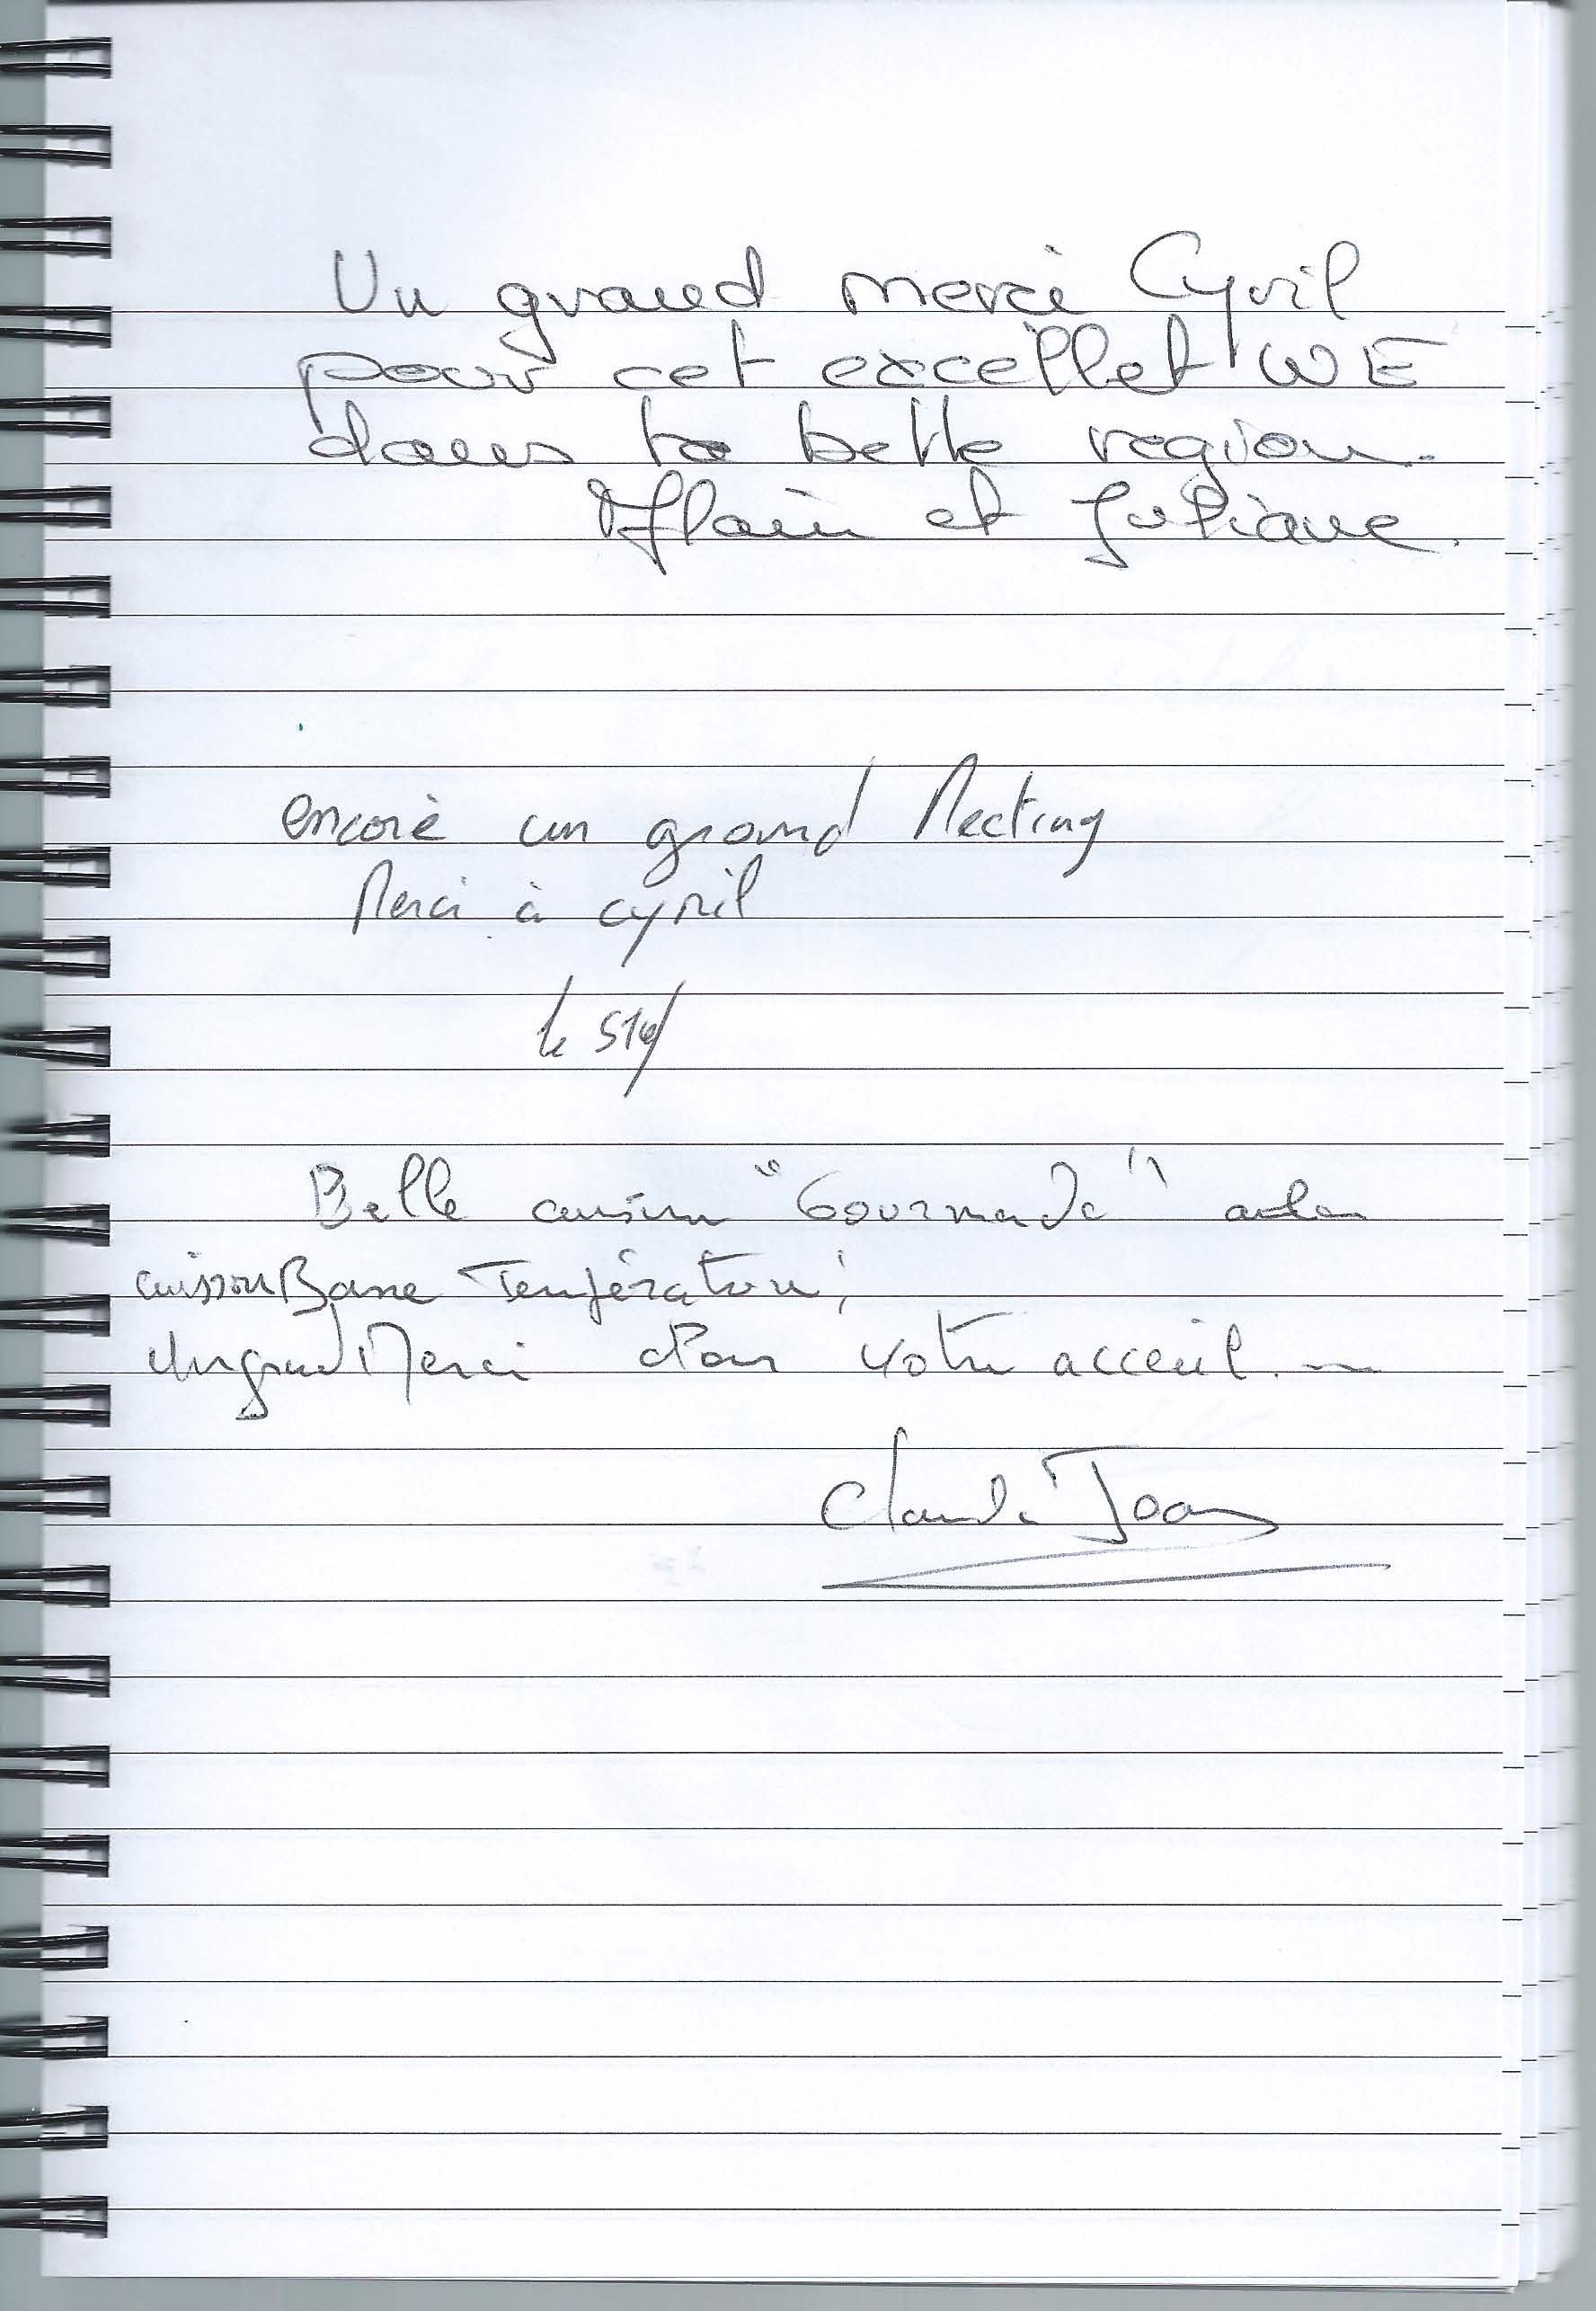 Un grand merci Cyril
pour cet excellet WE
dans ta belle region.
Alain et Juliane.
encore un grand Meeting
Merci à cyril
le
Belle cuisine "Gourmande"
cuisson Basse Température,
Un grand Merci Pour votre acceuil.
Claude Jean